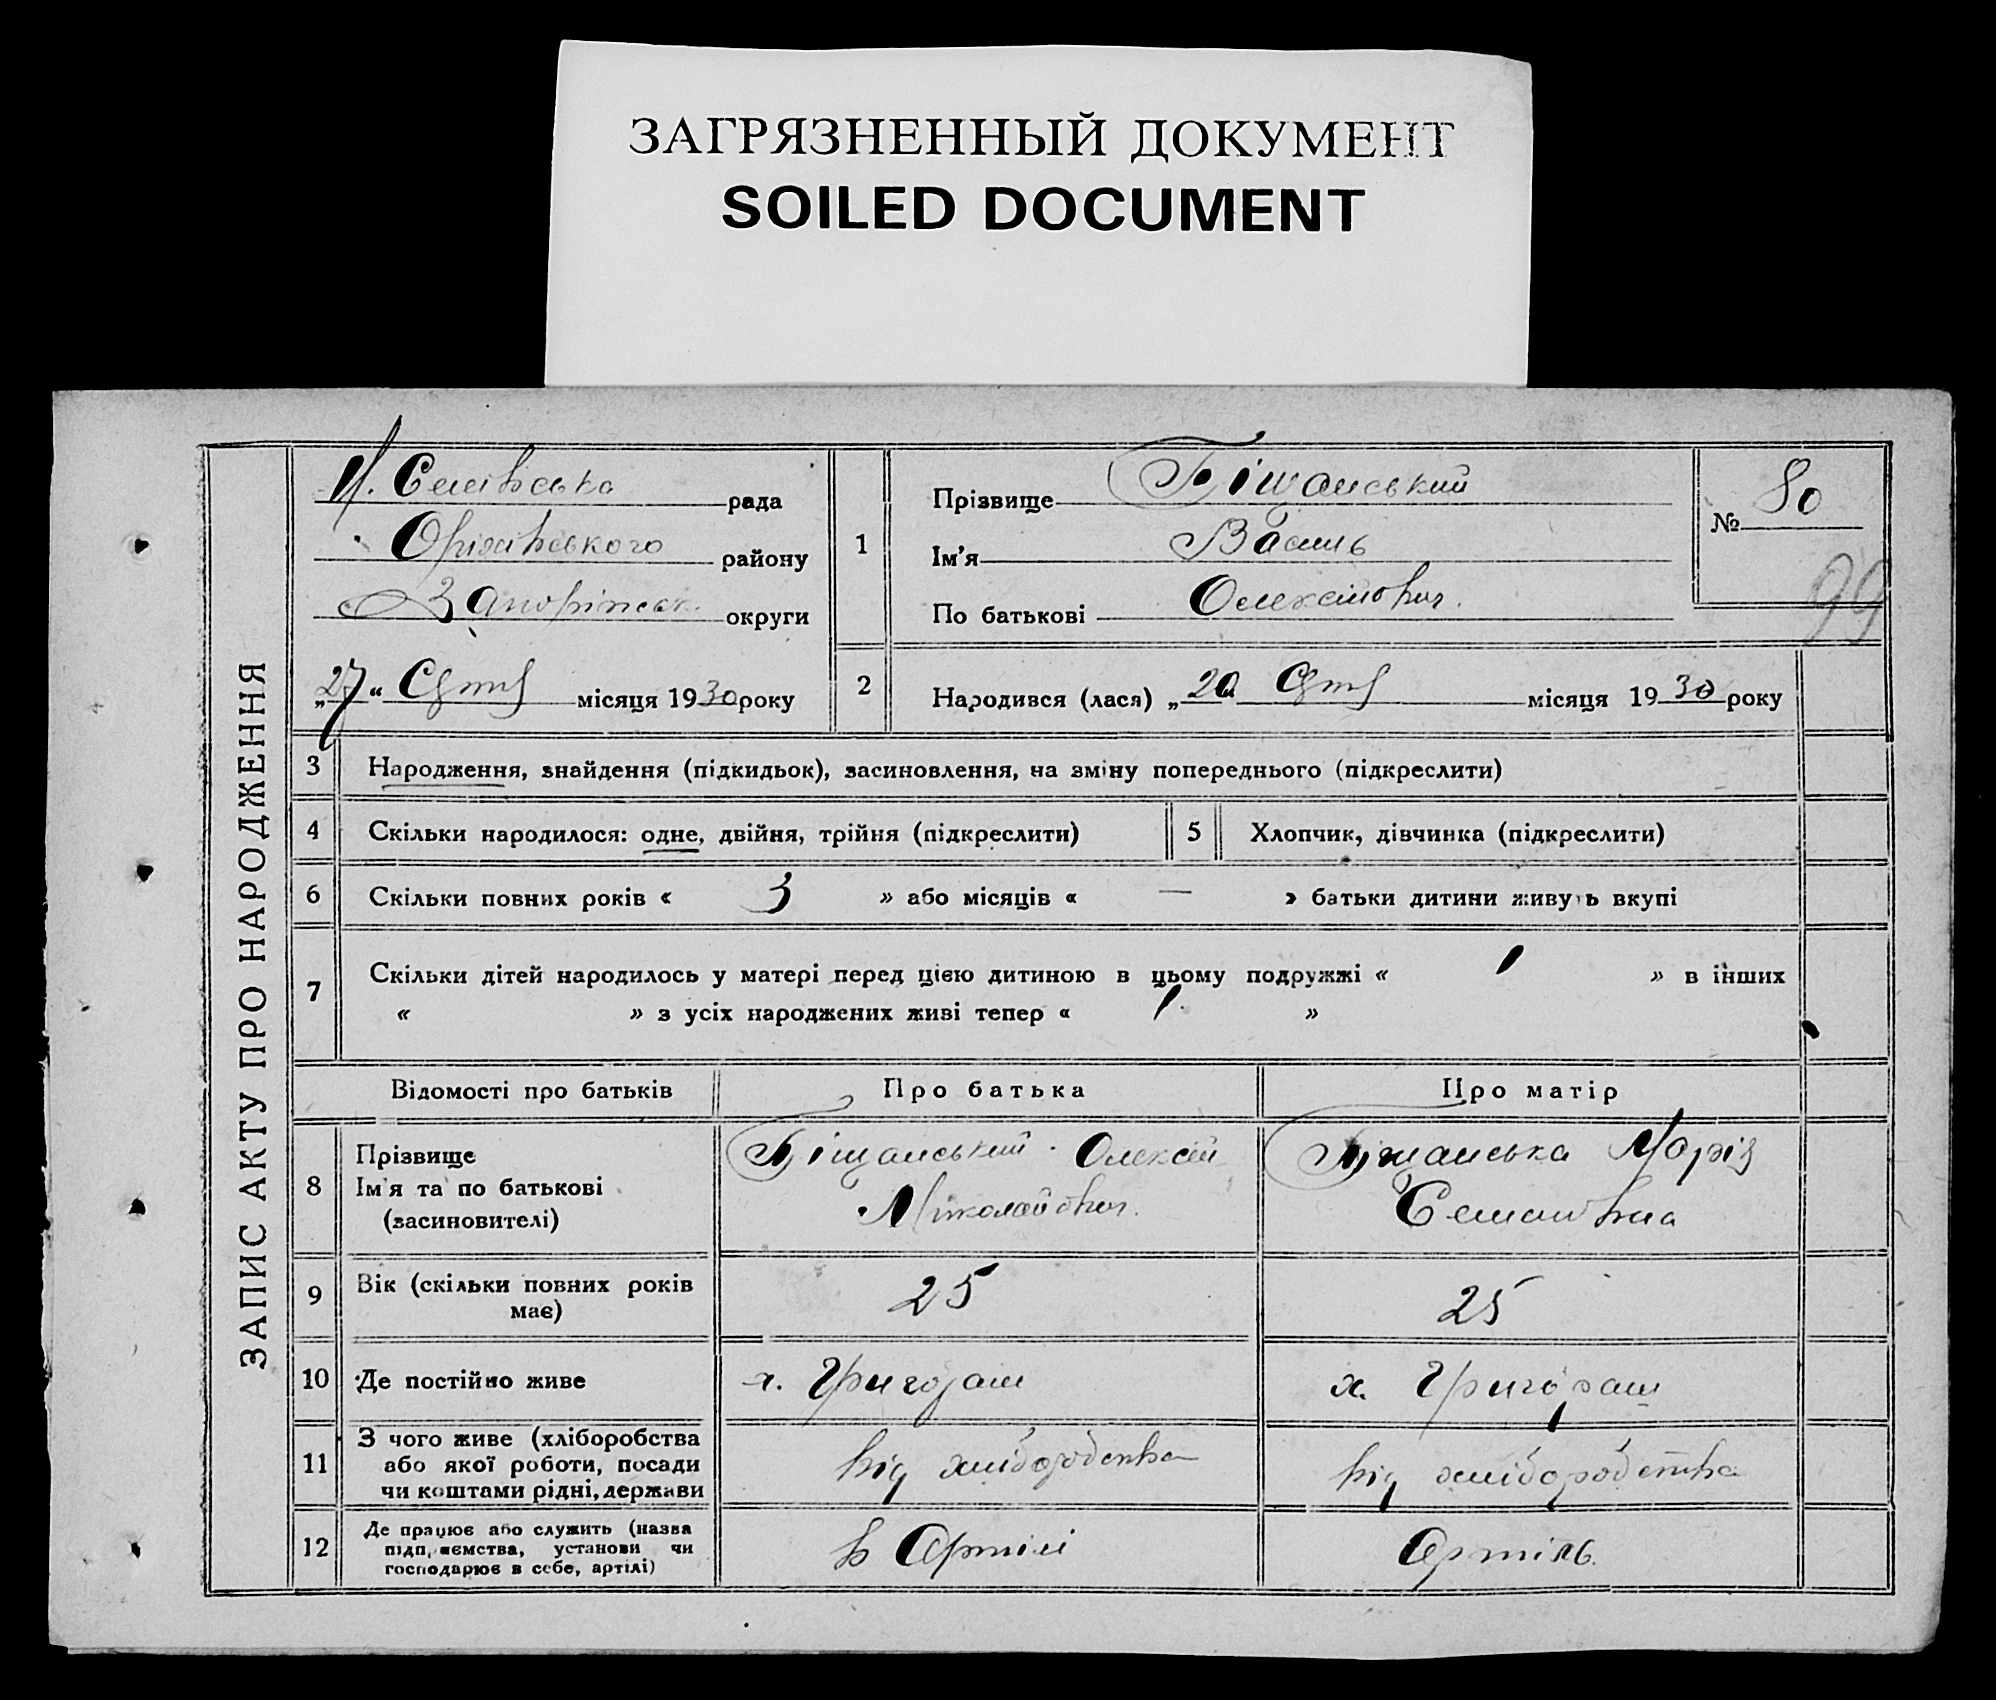 ЗАГРЯЗНЕННЫЙ ДОКУМЕНТ
SOILED DOCUMENT
ЗАПИС АКТУ ПРО НАРОДЖЕННЯ
рада
Оріхівського району
Запоріжськ. округи
„27“ місяця 1930 року
1
Прізвище Піщанський
Ім'я Василь
По батькові Олексійович.
№ 80
99
2 Народився (лася) „20 місяця 1930 року
3 Народження, знайдення (підкидьок), засиновлення, на зміну попереднього (підкреслити)
4 Скільки народилося: одне, двійня, трійня (підкреслити) 5 Хлопчик, дівчинка (підкреслити)
6 Скільки повних років « 3 » або місяців « — » батьки дитини живуть вкупі
7 Скільки дітей народилось у матері перед цією дитиною в цьому подружжі « 1 » в інших
« » з усіх народжених живі тепер « 1 »
Відомості про батьків Про батька Про матір
8 Прізвище Піщанський Олексій Піщанська Марія
Ім'я та по батькові Міколайович. Семенівна
(засиновителі)
9 Вік (скільки повних років 25 25
має)
10 Де постійно живе х. Григораш х. Григораш
11 З чого живе (хліборобства
або якої роботи, посади від хліборобства від хліборобства
чи коштами рідні, держави
12 Де працює або служить (назва
підприємства, установи чи в Артілі Артіль.
господарює в себе, артілі)